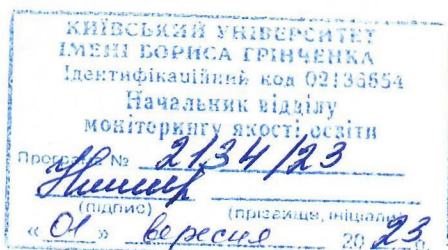 КИЇВСЬКИЙ УНІВЕРСИТЕТ
ІМЕНІ БОРИСА ГРІНЧЕНКА
Ідентифікаційний код 02136554
Начальник відділу
моніторингу якості освіти
Програма № 2134/23
(підпис) (прізвище, ініціали)
« 01 » вересня 2023 р.